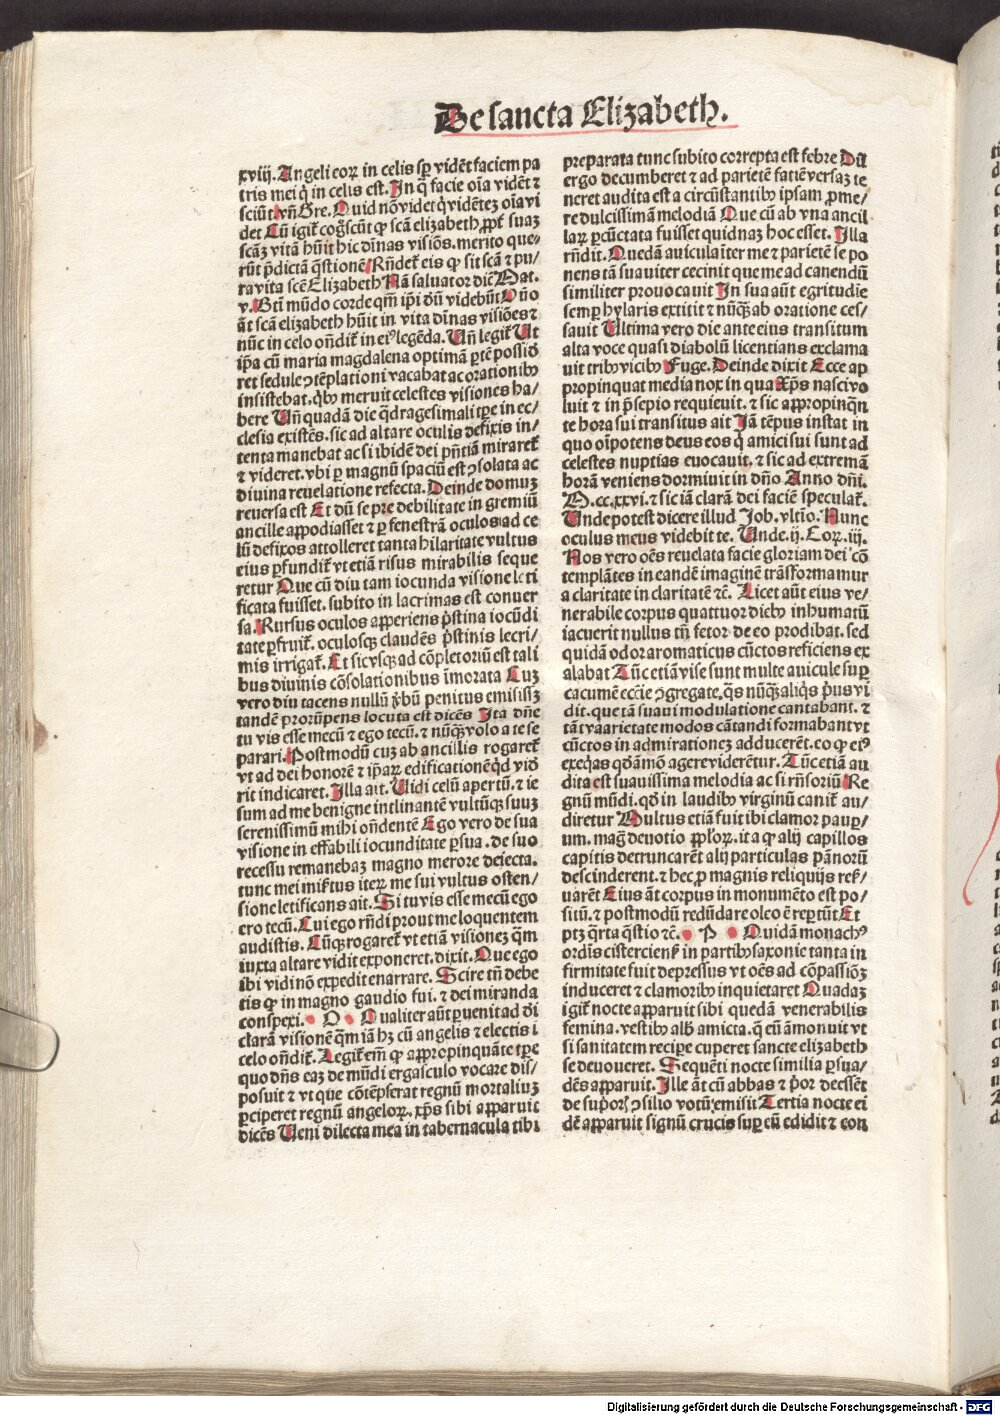 De sancta Elizabeth.
xviij. Angeli eoꝝ in celis sp̱ vidēt faciem pa
tris mei q̇ in celis est. In q̄ facie oīa vidēt ⁊
sciūt vn̄ Gre. Quid nō vidēt q̇ vidētez oīa vi
det Cū igit᷑ cog̃scūt ꝙ scā elizabeth ꝓpt᷑ suaz
scāz vitā hūit hic diīnas visiōs. merito que⸗
rūt p̄dictā q̄stionē Rn̄det᷑ eis ꝙ sit scā ⁊ pu/
ra vita scē Elizabeth Nā saluator dic̄ Mat.
v. Bt̄i mūdo corde qm̄ ip̄i dn̄ videbūt Qn̄o
āt scā elizabeth hūit in vita diīnas visiōes ⁊
nūc in celo on̄dit᷑ in eiꝰ legēda. Un̄ legit᷑ Ut
ip̄a cū maria magdalena optimā ꝑtē possid
ret sedule ꝯtēplationi vacabat ac orationibꝰ
insistebat. q̇bꝰ meruit celestes visiones ha/
bere Un̄ quadā die q̄dragesimali tꝑe in ec/
clesia existēs. sic ad altare oculis defixis in/
tenta manebat ac si ibidē dei pn̄tiā miraret᷑
⁊ videret. vbi ꝑ magnū spaciū est ꝯsolata ac
diuina reuelatione refecta. Deinde domuz
reuersa est Et dū se pre debilitate in gremiū
ancille appodiasset ⁊ ꝑ fenestrā oculos ad ce
lū defixos attolleret tanta hilaritate vultus
eius ꝑfundit᷑ vt etiā risus mirabilis seque
retur Que cū diu tam iocunda visione leti
ficata fuisset. subito in lacrimas est conuer
sa. Rursus oculos apperiens p̄stina iocūdi
tate ꝑfruit᷑. oculosqꝫ claudēs p̄stinis lecri/
mis irrigat᷑. Et sic vsqꝫ ad cōpletoriū est tali
bus diuinis cōsolationibus īmorata Cuz
vero diu tacens nullū v̄bū penitus emisisz
tandē prorūpens locuta est dicēs Ita dn̄e
tu vis esse mecū ⁊ ego tecū. ⁊ nūqꝫ volo a te se
parari. Postmodū cuz ab ancillis rogaret᷑
vt ad dei honorē ⁊ ip̄aꝝ edificationē qd̄ vid
rit indicaret. Illa ait. Uidi celū apertū. ⁊ ie
sum ad me benigne inclinantē vultūqꝫ suuz
serenissimū mihi on̄dentē Ego vero de sua
visione in effabili iocunditate ꝑfusa. de suo
recessu remanebaz magno merore deiecta.
tunc mei mir̄tus iteꝝ me sui vultus osten/
sione letificans ait. Si tu vis esse mecū ego
ero tecū. Cui ego rn̄di prout me loquentem
audistis. Cūqꝫ rogaret᷑ vt etiā visionez q̄m
iuxta altare vidit exponeret. dixit. Que ego
ibi vidi nō expedit enarrare. Scire tn̄ debe
tis ꝙ in magno gaudio fui. ⁊ dei miranda
conspexi. O Qualiter aūt ꝑuenit ad di
clarā visionē q̄m iā hꝫ cū angelis ⁊ electis i
celo on̄dit᷑. Legit᷑ em̄ ꝙ appropinquāte tꝑe
quo dn̄s eaz de mūdi ergasculo vocare dis/
posuit ⁊ vt que cōtēpserat regnū mortaliuz
ꝑciperet regnū angeloꝝ. xp̄s sibi apparuit
dicēs Ueni dilecta mea in tabernacula tibi
preparata tunc subito correpta est febre Dū
ergo decumberet ⁊ ad parietē faciē versaz te
neret audita est a circūstantibꝰ ipsam ꝓme/
re dulcissimā melodiā Que cū ab vna ancil
laꝝ ꝑcūctata fuisset quidnaz hoc esset. Illa
rn̄dit. Quedā auicula iter me ⁊ parietē se po
nens tā suauiter cecinit que me ad canendū
similiter prouocauit In sua aūt egritudīe
semꝑ hylaris extitit ⁊ nūqꝫ ab oratione ces/
sauit Ultima vero die ante eius transitum
alta voce quasi diabolū licentians exclama
uit tribꝰ vicibꝰ Fuge. Deinde dixit Ecce ap
propinquat media nox in qua Xp̄s nasci vo
luit ⁊ in p̄sepio requieuit. ⁊ sic appropinq̄n
te hora sui transitus ait Jā tēpus instat in
quo oīpotens deus eos q̇ amici sui sunt ad
celestes nuptias euocauit. ⁊ sic ad extremā
horā veniens dormiuit in dn̄o Anno dn̄i.
M. cc. xxvi. ⁊ sic iā clarā dei faciē speculat᷑.
Unde potest dicere illud Job. vltio. Nunc
oculus meus videbit te. Unde. ij. Coꝝ. iij.
Nos vero oēs reuelata facie gloriam dei cō
templātes in eandē imaginē trāsformamur
a claritate in claritatē ⁊c̄. Licet aūt eius ve/
nerabile corpus quattuor diebꝰ inhumatū
iacuerit nullus tn̄ fetor de eo prodibat. sed
quidā odor aromaticus cūctos reficiens ex
alabat Tūc etiā vise sunt multe auicule suꝑ
cacumē ecc̄ie ꝯgregate. q̄s nūqꝫ aliq̇s p̄us vi
dit. que tā suaui modulatione cantabant. ⁊
tā tvaarietate modos cātandi formabant vt
cūctos in admirationez adducerēt. eo ꝙ eiꝰ
exeq̇as qd̄āmō agere viderētur. Tūc etiā au
dita est suauissima melodia ac si rn̄soriū Re
gnū mūdi. qd̄ in laudibꝰ virginū canit᷑ au/
diretur Multus etiā fuit ibi clamor pauꝑ/
um. mag̃ deuotio ppl̓oꝝ. it a ꝙ alij capillos
capitis detruncarēt alij particulas pānorū
descinderent. ⁊ hec ꝓ magnis reliquijs ref᷑/
uarēt Eius āt corpus in monumēto est po/
sitū. ⁊ postmodū redūdare oleo ē reꝑtūt Et
ptꝫ q̄rta q̄stio ⁊c̄. P Quidā monachꝰ
ordīs cisterciensi᷑ in partibꝰ saxonie tanta in
firmitate fuit depressus vt oēs ad cōpassiōꝫ
induceret ⁊ clamoribꝰ inquietaret Quadaz
igit᷑ nocte apparuit sibi quedā venerabilis
femina. vestibꝰ alb̄ amicta. q̄ eū āmonuit vt
si sanitatem reciꝑe cuperet sancte elizabeth
se deuoueret. Sequēti nocte similia ꝑsua/
dēs apparuit. Ille āt cū abbas ⁊ p̄or deessēt
de sup̄orꝭ ꝯsilio votū emisit Tertia nocte ei
dē apparuit signū crucis suꝑ eū edidit ⁊ con
Digitalisierung gefördert durch die Deutsche Forschungsgemeinschaft - DFG